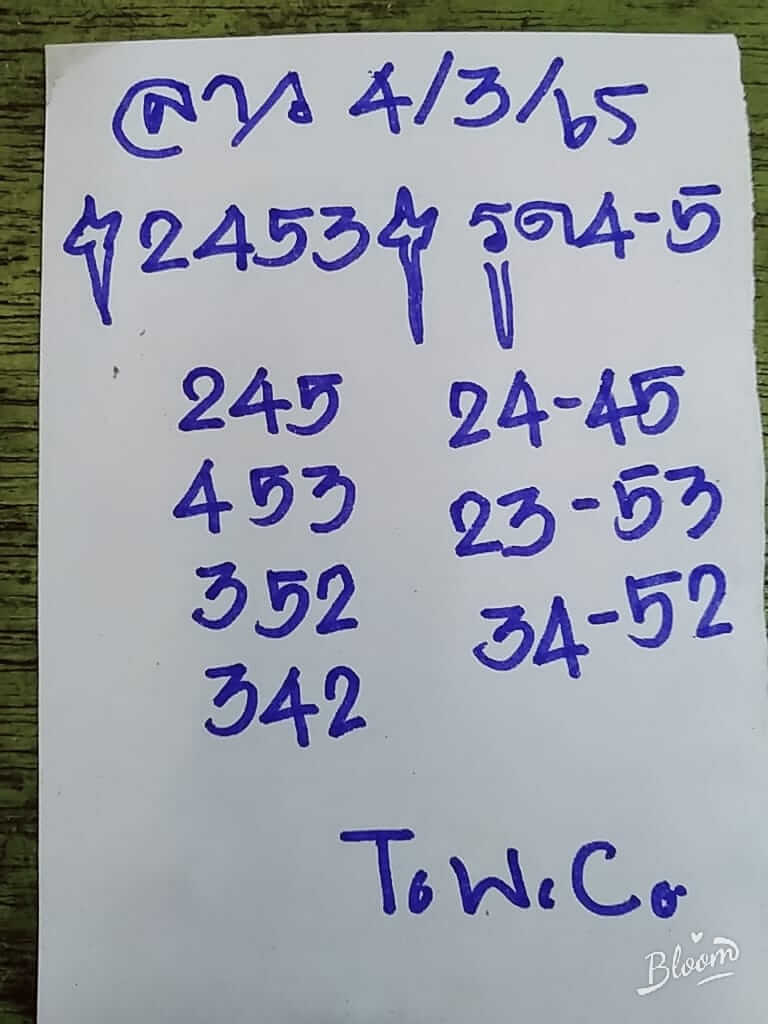 ลาว 4/3/65
2453 รูด 4-5
245 24-45
453 23-53
352 34-52
342
T.W.C.
Bloom